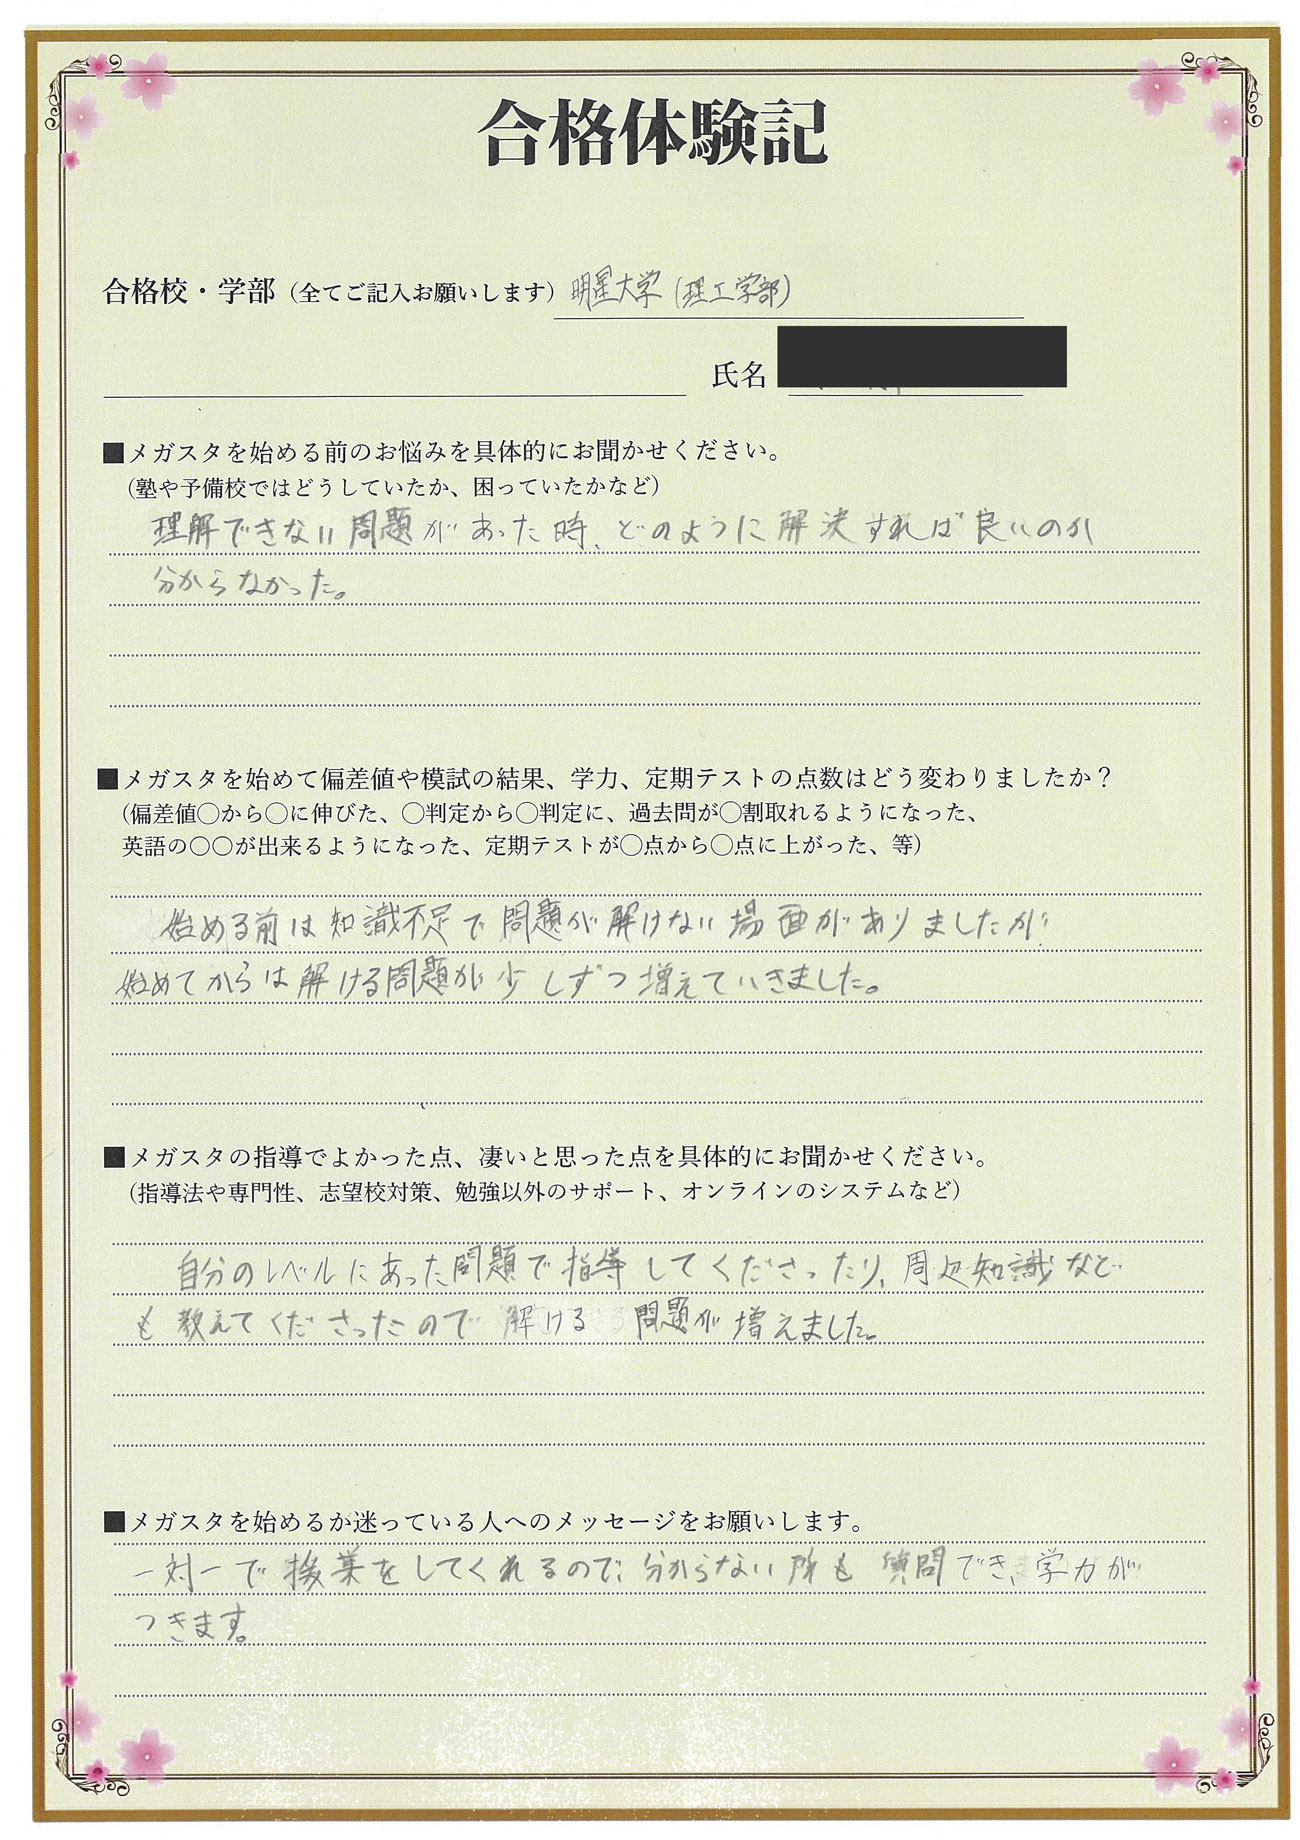 合格体験記
合格校・学部（全てご記入お願いします）明星大学(理工学部)
氏名
■メガスタを始める前のお悩みを具体的にお聞かせください。
（塾や予備校ではどうしていたか、困っていたかなど）
理解できない問題があった時、どのように解決すれば良いのか
分からなかった。
■メガスタを始めて偏差値や模試の結果、学力、定期テストの点数はどう変わりましたか？
（偏差値〇から〇に伸びた、〇判定から〇判定に、過去問が〇割取れるようになった、
英語の〇〇が出来るようになった、定期テストが〇点から〇点に上がった、等）
始める前は知識不足で問題が解けない場面がありましたが
始めてからは解ける問題が少しずつ増えていきました。
■メガスタの指導でよかった点、凄いと思った点を具体的にお聞かせください。
（指導法や専門性、志望校対策、勉強以外のサポート、オンラインのシステムなど）
自分のレベルにあった問題で指導してくださったり、周辺知識など
も教えてくださったので解ける問題が増えました。
■メガスタを始めるか迷っている人へのメッセージをお願いします。
一対一で授業をしてくれるので、分からない所も質問でき、学力が
つきます。